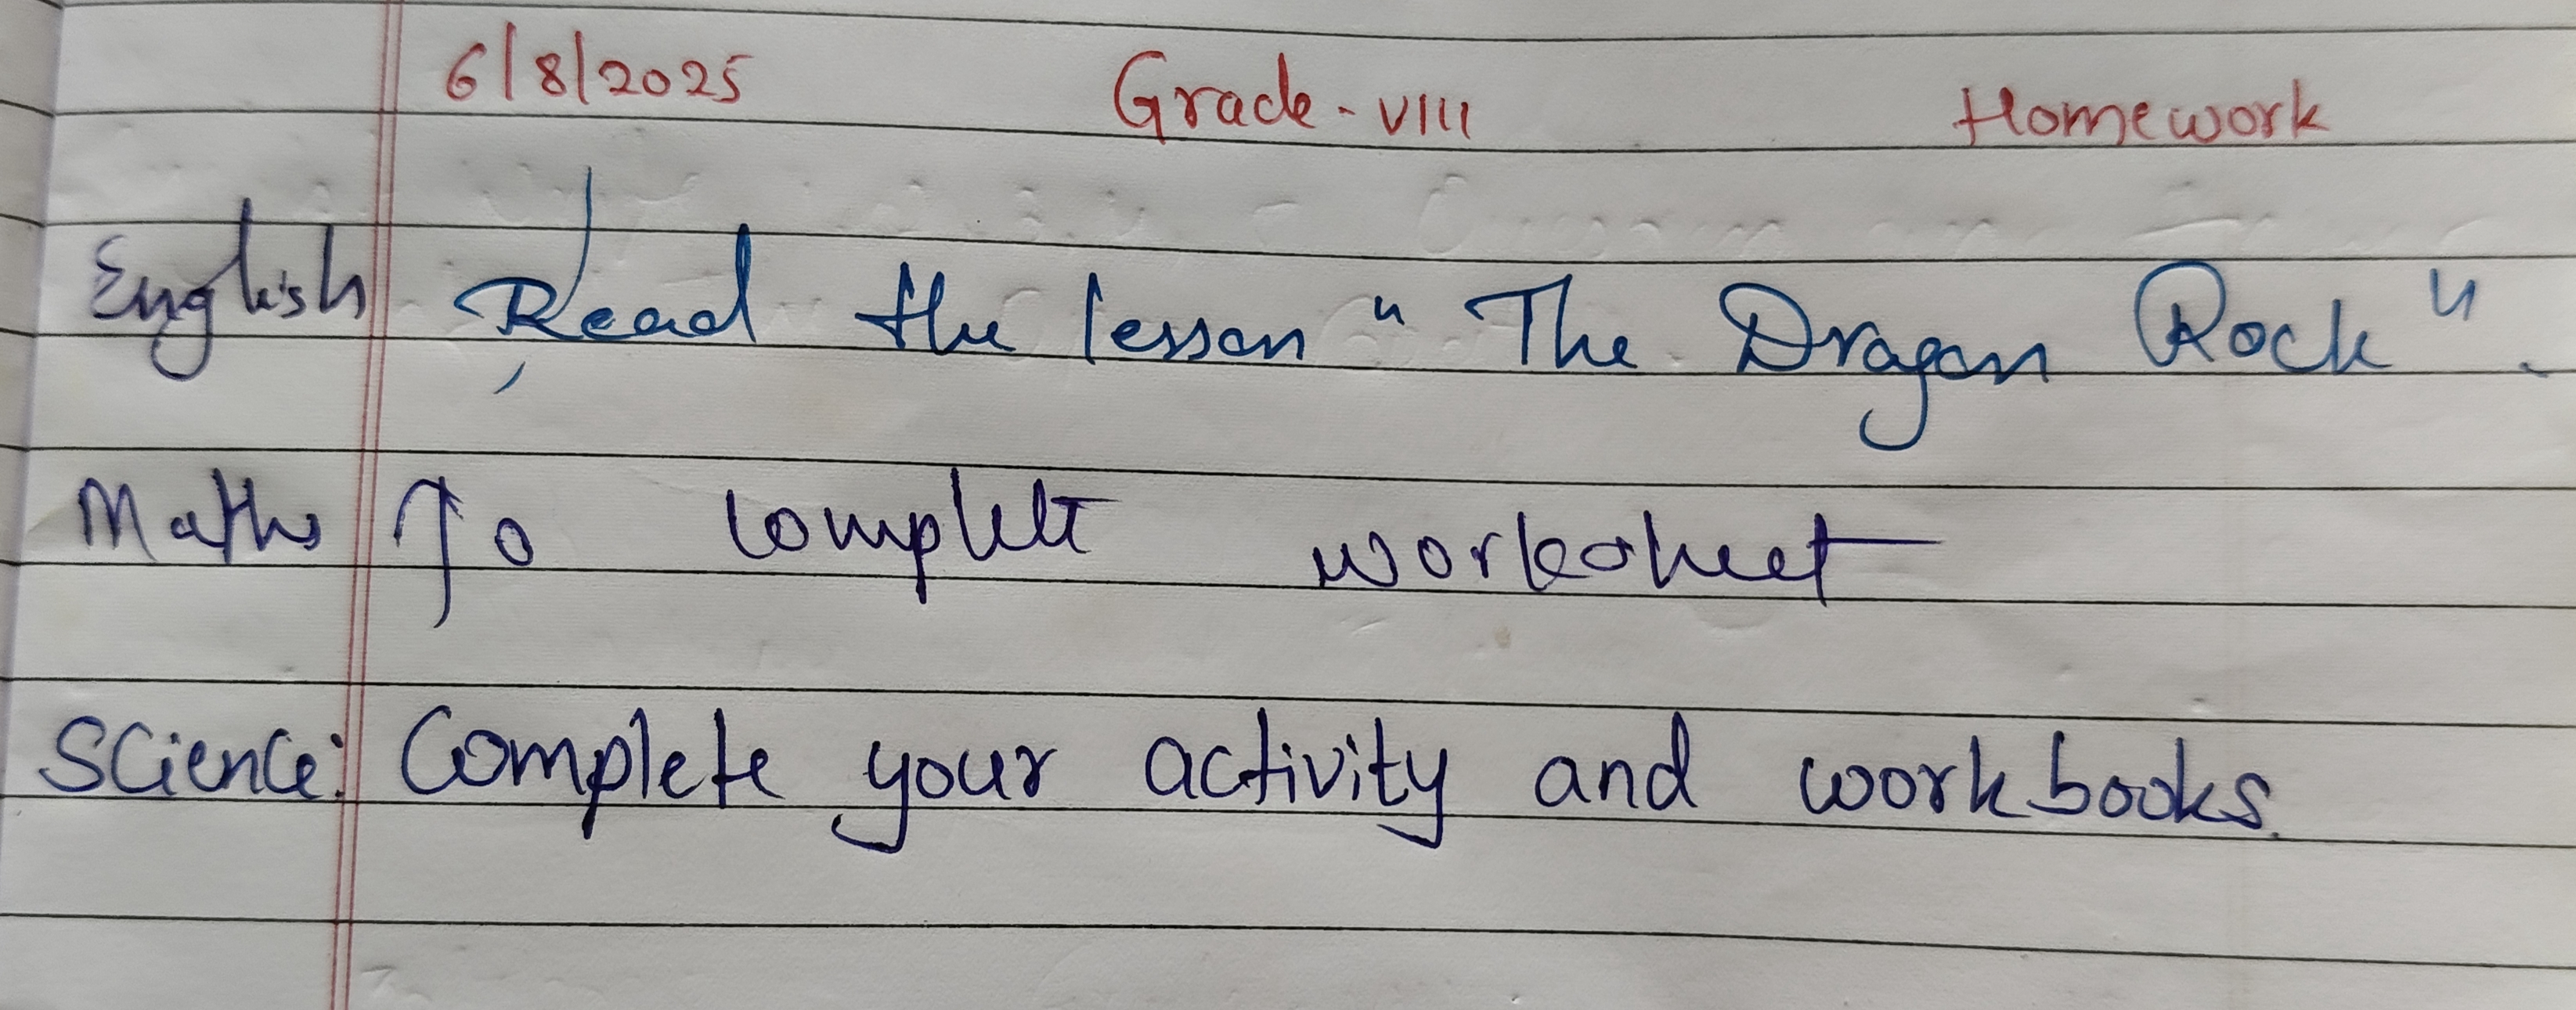 6/8/2025 Grade - VIII Homework
English Read the lesson "The Dragon Rock".
Maths To complete worksheet
Science: Complete your activity and workbooks.